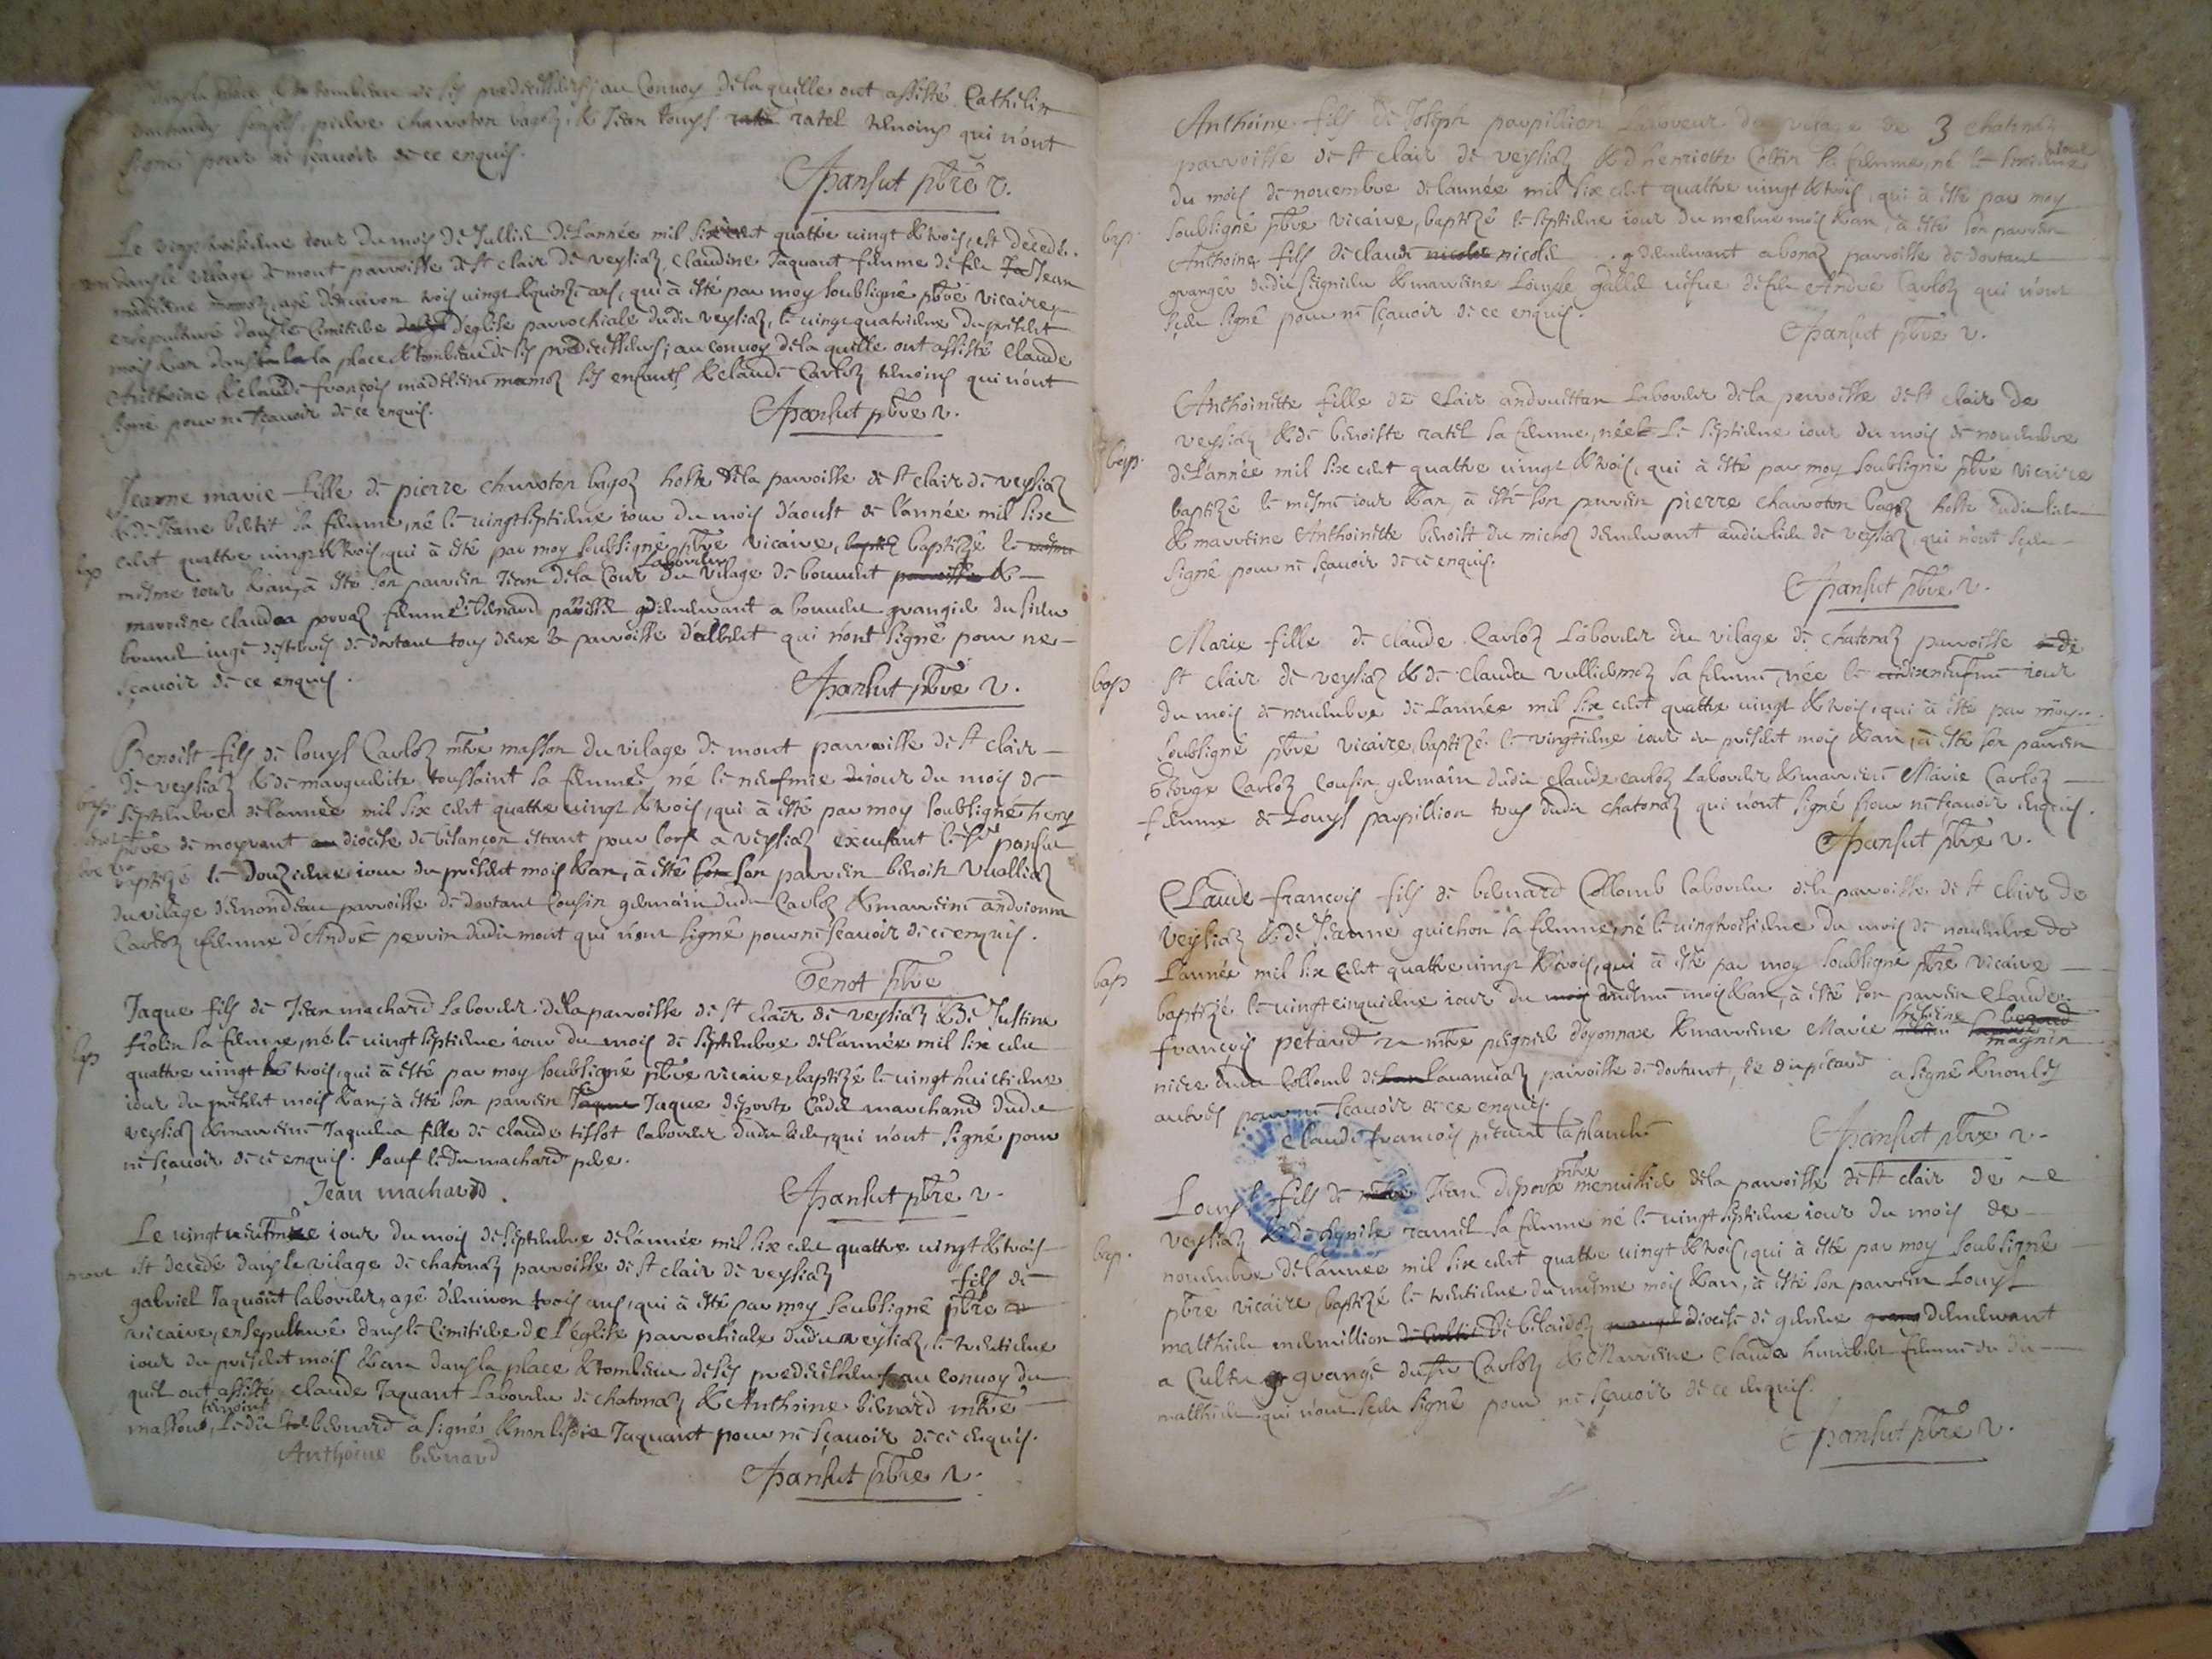 dans la place & tombeau de ses predecesseurs; au Convoy de la quelle ont assisté Cathelin
machard, pierre chavoton bagoz, & Jean Louys ratel temoins qui n'ont
signé pour ne sçavoir de ce enquis.
Pansut pbre v.
Le vingt troisieme iour du mois de Jullie de l'année mil six cent quattre vingt & trois, est decedé
dans le vilage de mont parroisse de st clair de veysiaz, claudine Jaquant femme de feu Jean
agé d'environ trois vingt & quinze ans, qui à esté par moy soubsigné pbre vicaire
ensepulturé dans le Cimitiere d'eglise parrochiale dudit veysiaz, le vingt quatrieme du present
mois & an dans la place & tombeau de ses predecesseurs; au convoy de la quelle ont assisté Claude
Anthoine & claude françois mamoz ses enfants & claude Carloz temoins qui n'ont
signé pour ne sçavoir de ce enquis.
Pansut pbre v.
Jeanne marie fille de pierre chavoton bagoz hoste de la parroisse de st clair de veysiaz
& de Jeane sa femme, né le vingt septieme iour du mois d'aoust de l'année mil six
bap
cent quattre vingt & trois, qui à esté par moy soubsigné pbre vicaire, baptizé le
mesme iour & an, à esté son parrein Jean de la Cour Laboureur du vilage de bouvent &
marreine claudaa femme bernard demeurant a bouvent grangier du sieur
brunel iuge des terres de dortant tous deux parroisse d'allent qui n'ont signé pour ne
sçavoir de ce enquis.
Pansut pbre v.
Benoist fils de louys Carloz mtre masson du vilage de mont parroisse de st clair
de veysiaz & de marguerite toussaint sa femme, né le neufme iour du mois de
bap
septembre de l'année mil six cent quattre vingt & trois, qui à esté par moy soubsigné
pbre de moyrant diocese de besançon estant pour lors a veysiaz excusant le sr pansut
baptizé le douzieme iour du present mois & an, à esté son parrein benoist Vuilliaz
du vilage d'emondeau parroisse de dortant Cousin germain dudit Carloz & marreine androinne
Carloz femme d'André perrin dudit mont qui n'ont signé pour ne sçavoir de ce enquis.
Genot pbre
Jaque fils de Jean machard Laboureur de la parroisse de st clair de veysiaz & de Justine
bap
sa femme, né le vingt septieme iour du mois de septembre de l'année mil six cent
quattre vingt & trois, qui à esté par moy soubsigné pbre vicaire, baptizé le vingt huictieme
iour du present mois & an, à esté son parrein Jaque deporta marchand dudit
veysiaz & marreine Jaquema fille de claude tissot laboureur dudit lieu, qui n'ont signé pour
ne sçavoir de ce enquis. sauf ledit machard pere.
Jean machard
Pansut pbre v.
Le vingt neufme iour du mois de septembre de l'année mil six cent quattre vingt & trois
mort
est decedé dans le vilage de chatonaz parroisse de st clair de veysiaz fils de
gabriel Jaquant laboureur, agé d'environ trois ans, qui à esté par moy soubsigné pbre
vicaire, ensepulturé dans le Cimitiere de l'église parrochiale dudit veysiaz, le trentieme
iour du present mois & an dans la place & tombeau de ses predecesseurs au convoy du
quel ont assisté claude Jaquant Laboureur de chatonaz & Anthoine bernard mtre
masson, temoins ledit bernard à signé & non ledit Jaquant pour ne sçavoir de ce enquis.
Anthoine bernard
Pansut pbre v.
3
Anthoine fils de Joseph papillion Laboureur du vilage de chatonaz
parroisse de st clair de veysiaz & d'henriette Collin sa femme, né le iour
du mois de novembre de l'année mil six cent quattre vingt & trois, qui à esté par moy
bap.
soubsigné pbre vicaire, baptizé le septieme iour du mesme mois & an, à esté son parrein
Anthoine fils de claude nicole demeurant a bonaz parroisse de dortant
granger dudit seigneur & marreine Louyse gallet vefue de feu André Carloz qui n'ont
sceu signé pour ne sçavoir de ce enquis.
Pansut pbre v.
Anthoinette fille de clair andruettan Laboureur de la parroisse de st clair de
veysiaz & de benoiste ratel sa femme, née Le septieme iour du mois de novembre
bap.
de l'année mil six cent quattre vingt & trois, qui à esté par moy soubsigné pbre vicaire
baptizé le mesme iour & an, à esté son parrein pierre chavoton bagoz hoste dudit lieu
& marreine Anthoinette benoist du michoz demeurant audit lieu de veysiaz, qui n'ont sceu
signé pour ne sçavoir de ce enquis.
Pansut pbre v.
Marie fille de claude Carloz Laboureur du vilage de chatonaz parroisse de
bap
st clair de veysiaz & de clauda vulliermoz sa femme, née le dixneufme iour
du mois de novembre de l'année mil six cent quattre vingt & trois, qui à esté par moy
soubsigné pbre vicaire, baptizé le vingtieme iour du present mois & an, à esté son parrein
George Carloz Cousin germain dudit claude carloz Laboureur & marreine Marie Carloz
femme de Louys papillion tous dudit chatonaz qui n'ont signé pour ne sçavoir enquis.
Pansut pbre v.
Claude françois fils de bernard Collomb laboureur de la parroisse de st clair de
veysiaz & de Jeanne guichon sa femme, né le vingt troisieme du mois de novembre de
bap
l'année mil six cent quattre vingt & trois, qui à esté par moy soubsigné pbre vicaire
baptizé le vingt cinquieme iour du mesme mois & an, à esté son parrein claude
françois petard mtre peignier d'oyonnax & marreine Marie magnin
niece dudit Collomb de Lavanciaz parroisse de dortant, le dit picard a signé & non les
autres pour ne sçavoir de ce enquis.
claude françois petard laplanche
Pansut pbre v.
Louys fils de Jean deporta mtre menuisier de la parroisse de st clair de
bap.
veysiaz & de denise ramel sa femme né le vingt septieme iour du mois de
novembre de l'année mil six cent quattre vingt & trois, qui à esté par moy soubsigné
pbre vicaire, baptizé le trentieme du mesme mois & an, à esté son parrein Louys
matthieu mermillion diocese de geneve demeurant
a Cultu grangé du sr Carloz & Marreine Clauda humbert femme du dit
matthieu qui n'ont sceu signé pour ne sçavoir de ce enquis.
Pansut pbre v.